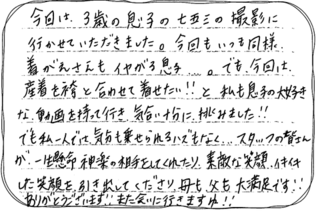 今回は、3歳の息子の七五三の撮影に
行かせていただきました。今回もいつも同様
着がえさえもイヤがる息子…。でも、今回は、
産着を袴と合わせて着せたい!!と私も息子の大好き
な動画を持って行き、気合い十分に挑みました!!
でも私一人で、気分も乗せられるハズもなく…スタッフの皆さん
が、一生懸命神楽の相手をしてくれたり、素敵な笑顔、イキイキ
した笑顔を引き出してくださり、母も父も大満足です!!
ありがとうございます!!また会いに行きますね!!